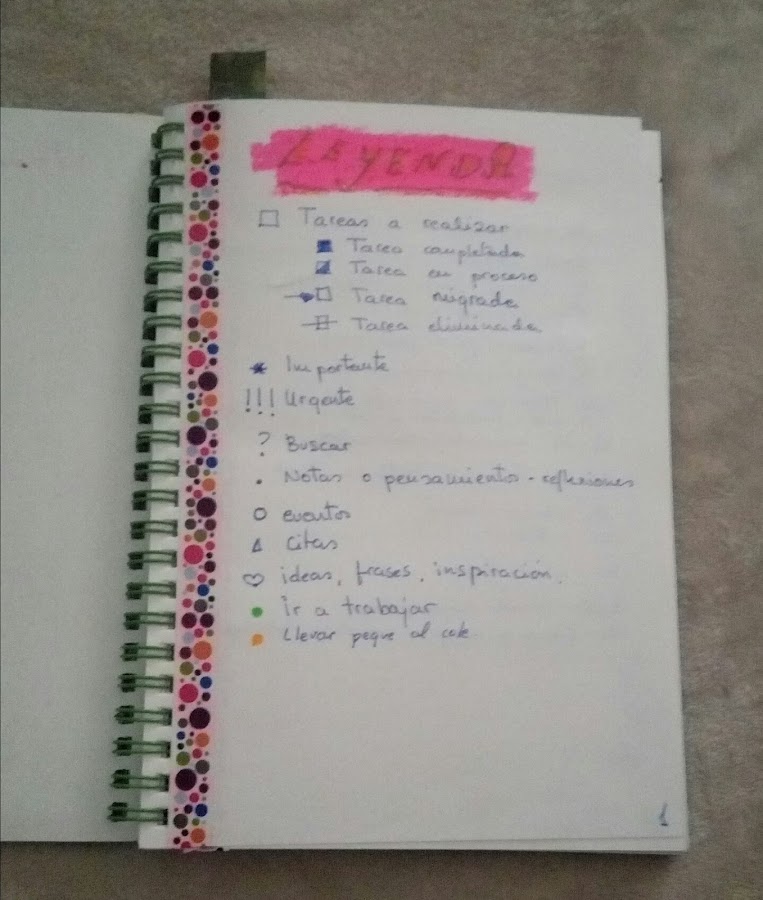 LEYENDA
Tareas a realizar
Tarea completada
Tarea en proceso
Tarea migrada
Tarea eliminada
Importante
!!! Urgente
? Buscar
. Notas o pensamientos - reflexiones
eventos
citas
ideas, frases, inspiración.
Ir a trabajar
Llevar peque al cole
1